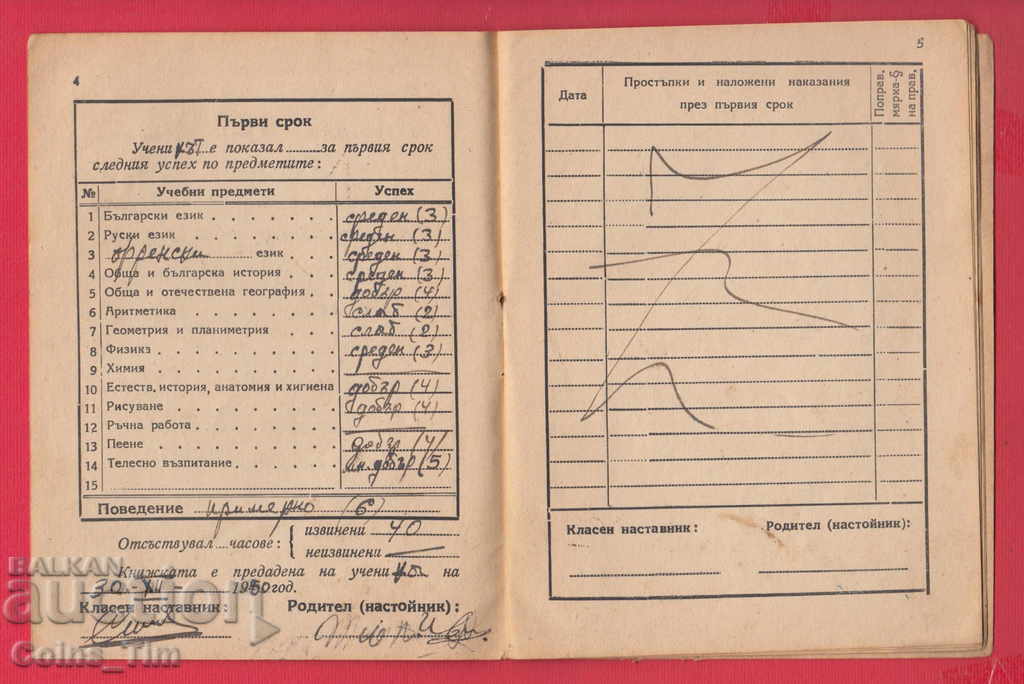 4
Първи срок
Учени е показал за първия срок
следния успех по предметите:
№ Учебни предмети Успех
1 Български език среден (3)
2 Руски език среден (3)
3 френски език среден (3)
4 Обща и българска история среден (3)
5 Обща и отечествена география добър (4)
6 Аритметика слаб (2)
7 Геометрия и планиметрия слаб (2)
8 Физика среден (3)
9 Химия
10 Естеств. история, анатомия и хигиена добър (4)
11 Рисуване добър (4)
12 Ръчна работа
13 Пеене добър (4)
14 Телесно възпитание мн. добър (5)
15
Поведение примерно (6)
Отсъствувал часове: извинени 40
неизвинени
Книжката е предадена на учени на
30 XII 1950 год.
Класен наставник: Родител (настойник):
5
Дата Простъпки и наложени наказания през първия срок Поправ. мярка-§ на прав.
Класен наставник: Родител (настойник):
BALKAN
auction
Coins_Tim